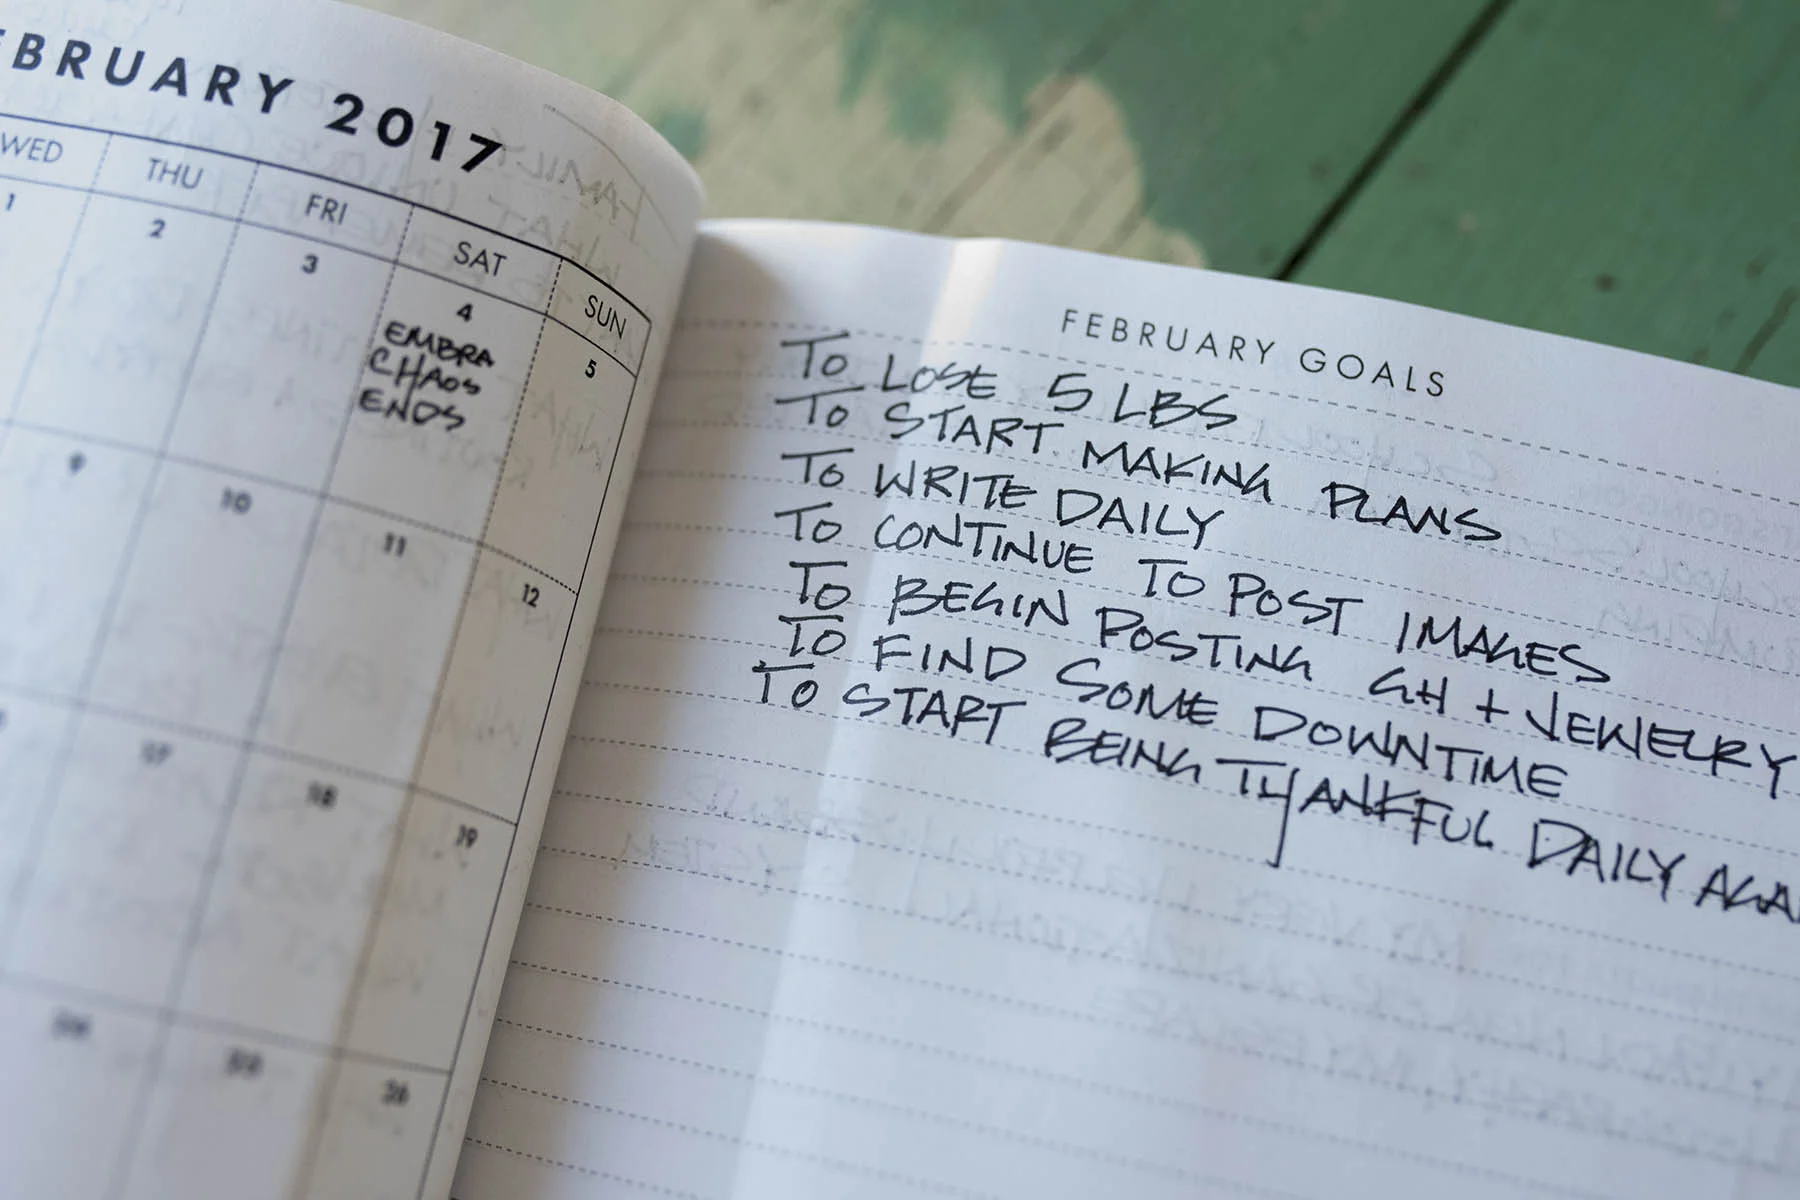 EBRUARY 2017
WED THU FRI SAT SUN
1 2 3 4 5
EMBRA
CHAOS
ENDS
9 10 11 12
17 18 19
26
FEBRUARY GOALS
TO LOSE 5 LBS
TO START MAKING PLANS
TO WRITE DAILY
TO CONTINUE TO POST IMAGES
TO BEGIN POSTING GH + JEWELRY
TO FIND SOME DOWNTIME
TO START BEING THANKFUL DAILY AGA